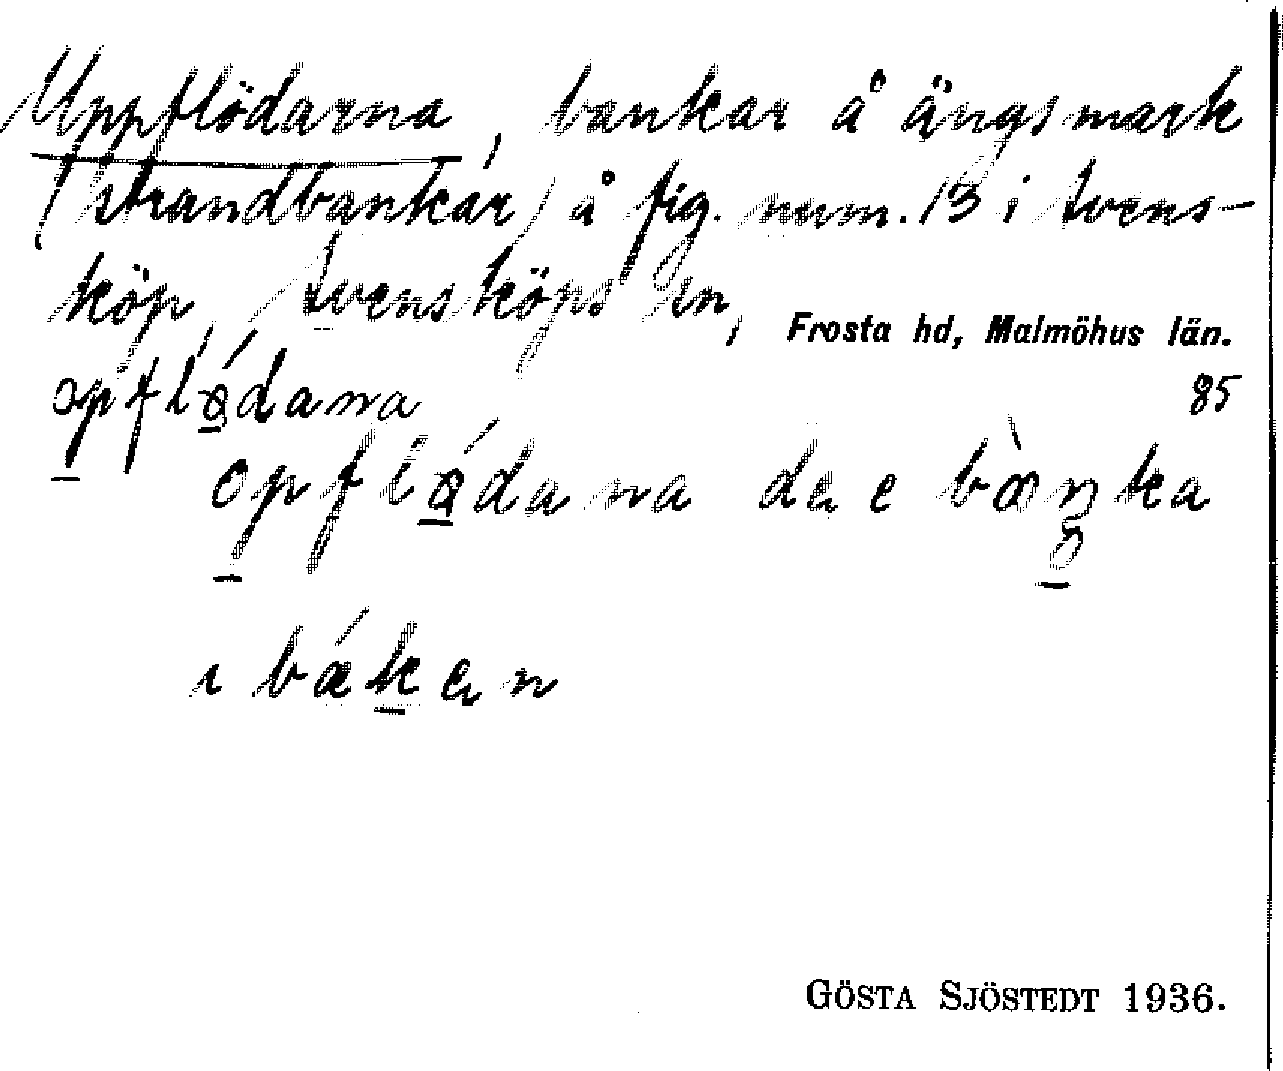 Uppflödarna, bankar å ängsmark
(strandbankar) å fig. num. 13 i Svens-
köp, Svensköps sn,
Frosta hd, Malmöhus län.
opflǿdana
85
opflǿdana da e bànka
i bækan
GÖSTA SJÖSTEDT 1936.